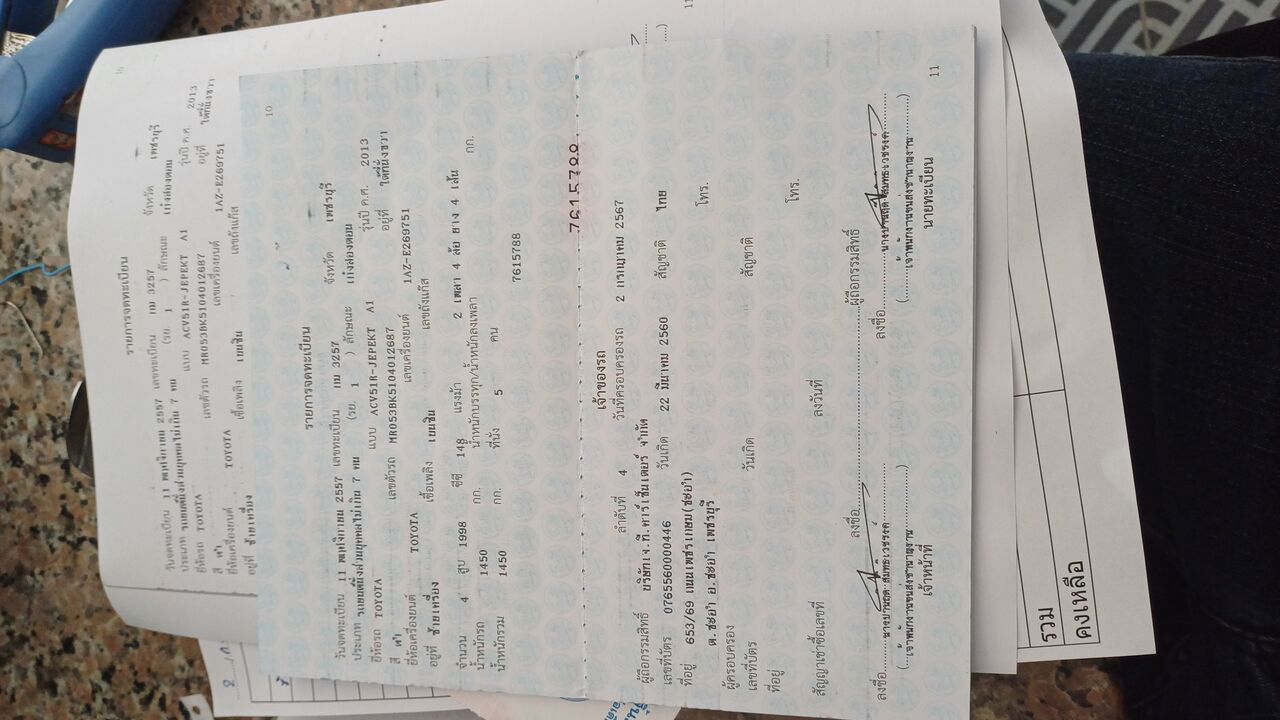 10
รายการจดทะเบียน
วันจดทะเบียน 11 พฤศจิกายน 2557 เลขทะเบียน กม 3257 จังหวัด เพชรบุรี
ประเภท รถยนต์นั่งส่วนบุคคลไม่เกิน 7 คน (รย. 1 ) ลักษณะ เก๋งสองตอน
ยี่ห้อรถ TOYOTA แบบ ACV51R-JEPEKT A1 รุ่นปี ค.ศ. 2013
สี ดำ เลขตัวรถ MR053BK5104012687 อยู่ที่ ใต้ที่นั่งขวา
ยี่ห้อเครื่องยนต์ TOYOTA เลขเครื่องยนต์ 1AZ-E269751
อยู่ที่ ซ้ายเครื่อง เชื้อเพลิง เบนซิน เลขถังแก๊ส
10
รายการจดทะเบียน
วันจดทะเบียน 11 พฤศจิกายน 2557 เลขทะเบียน กม 3257 จังหวัด เพชรบุรี
ประเภท รถยนต์นั่งส่วนบุคคลไม่เกิน 7 คน (รย. 1 ) ลักษณะ เก๋งสองตอน
ยี่ห้อรถ TOYOTA แบบ ACV51R-JEPEKT A1 รุ่นปี ค.ศ. 2013
สี ดำ เลขตัวรถ MR053BK5104012687 อยู่ที่ ใต้ที่นั่งขวา
ยี่ห้อเครื่องยนต์ TOYOTA เลขเครื่องยนต์ 1AZ-E269751
อยู่ที่ ซ้ายเครื่อง เชื้อเพลิง เบนซิน เลขถังแก๊ส
จำนวน 4 สูบ 1998 ซีซี 148 แรงม้า 2 เพลา 4 ล้อ ยาง 4 เส้น
น้ำหนักรถ 1450 กก. น้ำหนักบรรทุก/น้ำหนักลงเพลา กก.
น้ำหนักรวม 1450 กก. ที่นั่ง 5 คน
7615788
7615788
เจ้าของรถ
ลำดับที่ 4 วันที่ครอบครองรถ 2 กรกฎาคม 2567
ผู้ถือกรรมสิทธิ์ บริษัทเจ.ที.คาร์เซ็นเตอร์ จำกัด
เลขที่บัตร 0765560000446 วันเกิด 22 มีนาคม 2560 สัญชาติ ไทย
ที่อยู่ 653/69 ถนนเพชรเกษม(ชะอำ) โทร.
ต.ชะอำ อ.ชะอำ เพชรบุรี
ผู้ครอบครอง
เลขที่บัตร วันเกิด สัญชาติ
ที่อยู่ โทร.
สัญญาเช่าซื้อเลขที่ ลงวันที่
ลงชื่อ ผู้ถือกรรมสิทธิ์
ลงชื่อ ลงชื่อ
(เจ้าพนักงานขนส่งชำนาญงาน) (เจ้าพนักงานขนส่งชำนาญงาน)
เจ้าหน้าที่ นายทะเบียน
11
รวม
คงเหลือ